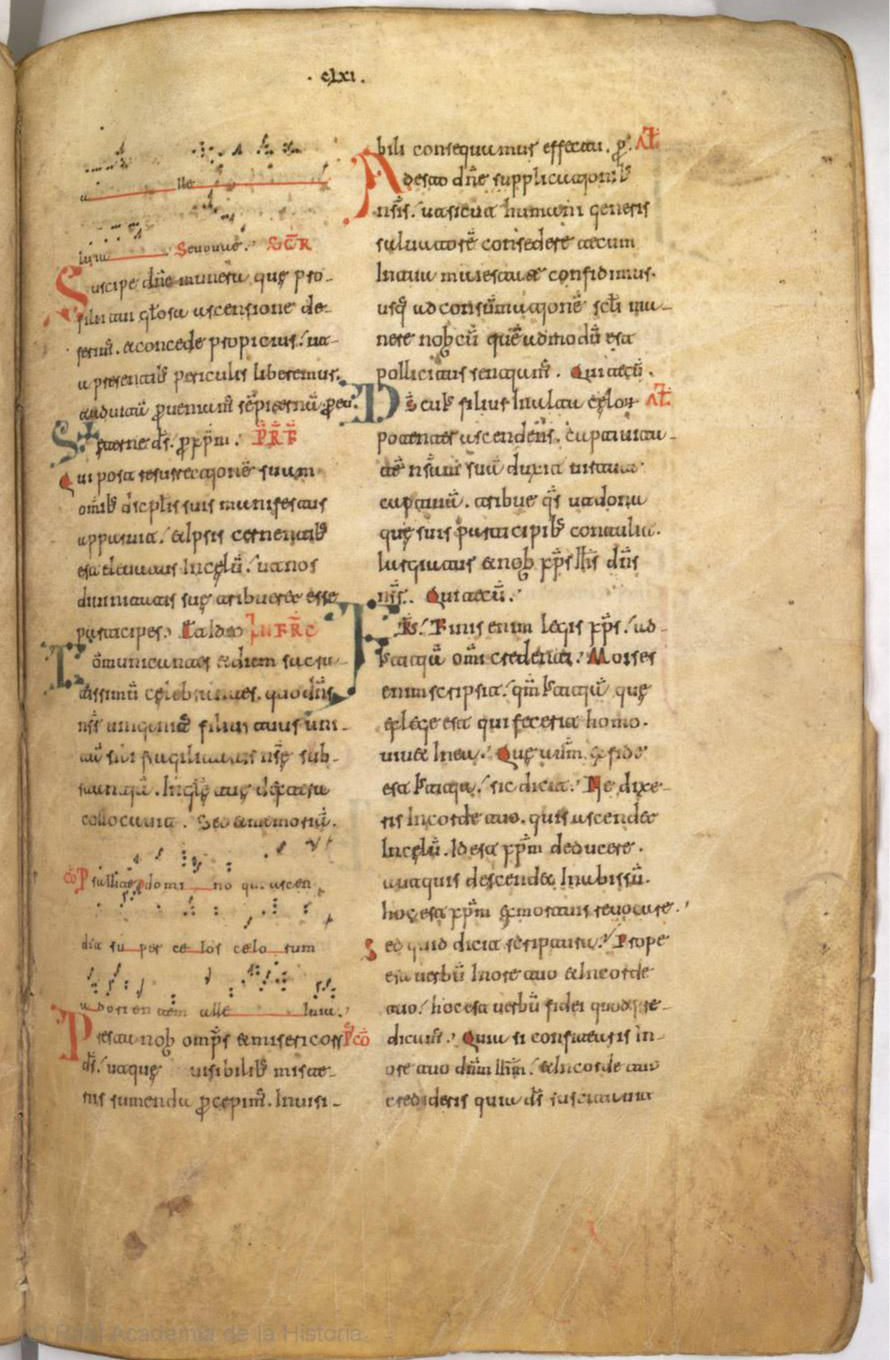 · clxi .
a lle
luia Seuouae. SCR
Suscipe dn̄e munera que pro-
filii tui gl̄osa ascensione de-
ferim̄. & concede propicius / ut
a presentib; periculis liberemur.
& ad uitā ꝑueniam̄ sēpiternā. ꝑ eū.
eterne ds̄. ꝑ xp̄m. PRF
Qui post resurrectionē suam
omīb; discipl̄is suis manifestus
apparuit / & ipsis cernentib;
est eleuatus in celū / ut nos
diuinitatis sue tribueret esse
participes. & ideo INFRC
Comunicantes & diem sacra-
tissimū celebrantes. quo dn̄s
nr̄s unigenitꝰ filius tuus uni-
tā sibi fragilitatis nr̄e sub-
stantiā. in gle tue dextera
collocauit. Sed & memoriā.
cō Psallite domino qui ascen
dit su per ce los celo rum
ad orientem alle luia.
Presta nob om̄ps & misericors Pcō
ds̄. ut que uisibilib; miste-
riis sumenda ꝑcepim̄. inuisi-
bili consequamur effectu. ꝑ. AL̄
Adesto dn̄e supplicationib;
nr̄is. ut sicut humani generis
saluatorē consedere tecum
in tua maiestate confidimus.
usq; ad consūmationē scl̄i ma-
nere nobcū quēadmodū est
pollicitus sentiam̄. Qui tecū.
Ds̄ cuꝰ filius in alta celor̄ AL̄
potenter ascendens. captiuita-
tē nr̄am sua duxit uirtute
captiuā. tribue qs̄ ut dona
que suis participib; contulit.
largiatur & nob xp̄s ih̄s dn̄s
nr̄s. Qui tecū.
FRS. Finis enim legis xp̄s / ad
iustitiā omī credenti. Moises
enim scripsit / qm̄ iustitiā que
ex lege est qui fecerit homo.
uiuet in ea. Que autm̄ ex fide
est iustitia / sic dicit. Ne dixe-
ris in corde tuo. quis ascendet
in celū. id est xp̄m deducere.
aut quis descendet in abissū.
hoc est xp̄m ex mortuis reuocare.
Sed quid dicit scriptura. Prope
est uerbū in ore tuo & in corde
tuo / hoc est uerbū fidei quod pre-
dicam̄. Quia si confitearis in
ore tuo dn̄m ih̄m / & in corde tuo
credideris quia ds̄ suscitauit
© Real Academia de la Historia.